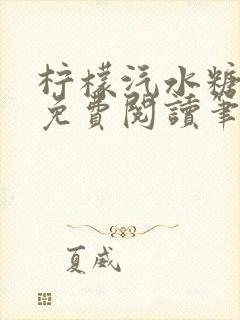 柠檬汽水糖
免費閱讀筆
夏威